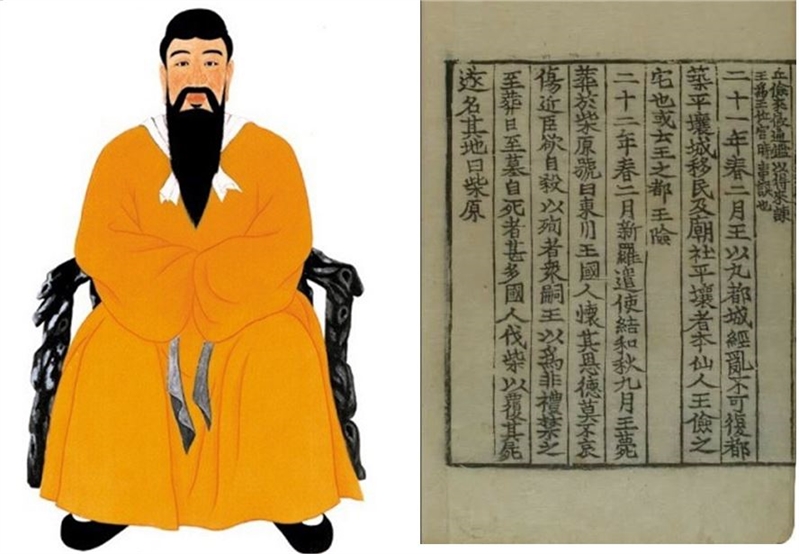 丘儉來侵通鑑以得來諫
王爲王位宮時事誤也
二十一年春二月王以丸都城經亂不可復都
築平壤城移民及廟社平壤者本仙人王儉之
宅也或云王之都王險
二十二年春二月新羅遣使結和秋九月王薨
葬於柴原號曰東川王國人懷其恩德莫不哀
傷近臣欲自殺以殉者衆嗣王以爲非禮禁之
至葬日至墓自死者甚多國人伐柴以覆其屍
遂名其地曰柴原